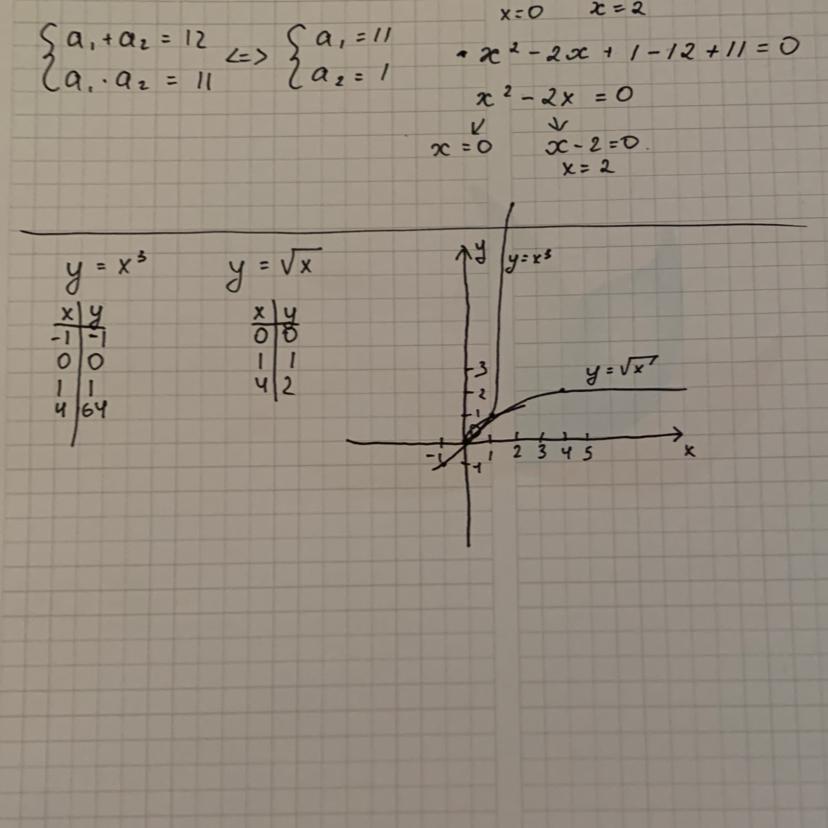 x=0 x=2
{ a₁ + a₂ = 12 <=> { a₁ = 11
{ a₁ · a₂ = 11 { a₂ = 1
· x² - 2x + 1 - 12 + 11 = 0
x² - 2x = 0
↙ ↓
x = 0 x - 2 = 0.
x = 2
y = x³
x | y
-1 | -1
0 | 0
1 | 1
4 | 64
y = √x
x | y
0 | 0
1 | 1
4 | 2
y
y = x³
3
2
1
y = √x
-1 0 1 2 3 4 5 x
-1